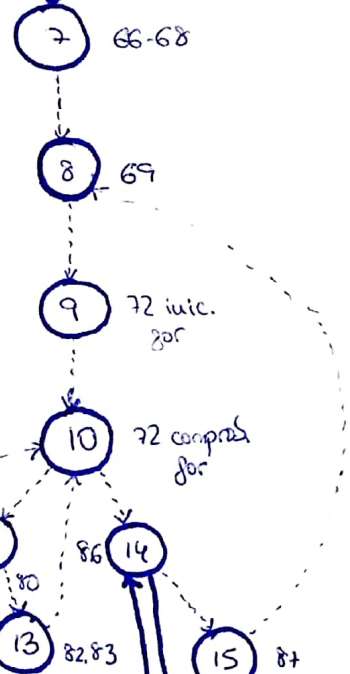 7 66-68
8 69
9 72 inic.
for
10 72 comprob
for
86 14
80
13 82,83
15 87